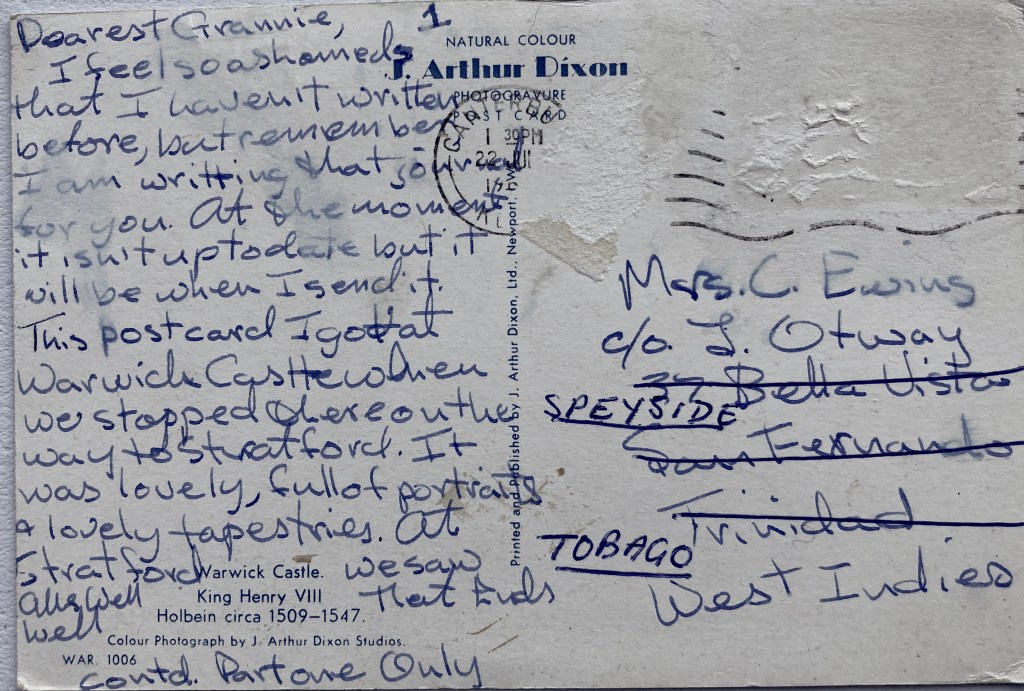 Dearest Grannie,
I feel so ashamed
that I haven't written
before, but remember
I am writting that journal
for you. At the moment
it isn't up to date but it
will be when I send it.
This postcard I got at
Warwick Castle when
we stopped there on the
way to Stratford. It
was lovely, full of portraits
& lovely tapestries. At
Stratford we saw
Alls Well That Ends
Well
contd. Part one Only
1
NATURAL COLOUR
J. Arthur Dixon
PHOTOGRAVURE
POST CARD
1 30PM
22
Printed and Published by J. Arthur Dixon, Ltd., Newport, I.W.
Warwick Castle.
King Henry VIII
Holbein circa 1509–1547.
Colour Photograph by J. Arthur Dixon Studios.
WAR. 1006
Mrs. C. Ewing
c/o. L. Otway
37 Bella Vista
SPEYSIDE
San Fernando
Trinidad
TOBAGO
West Indies